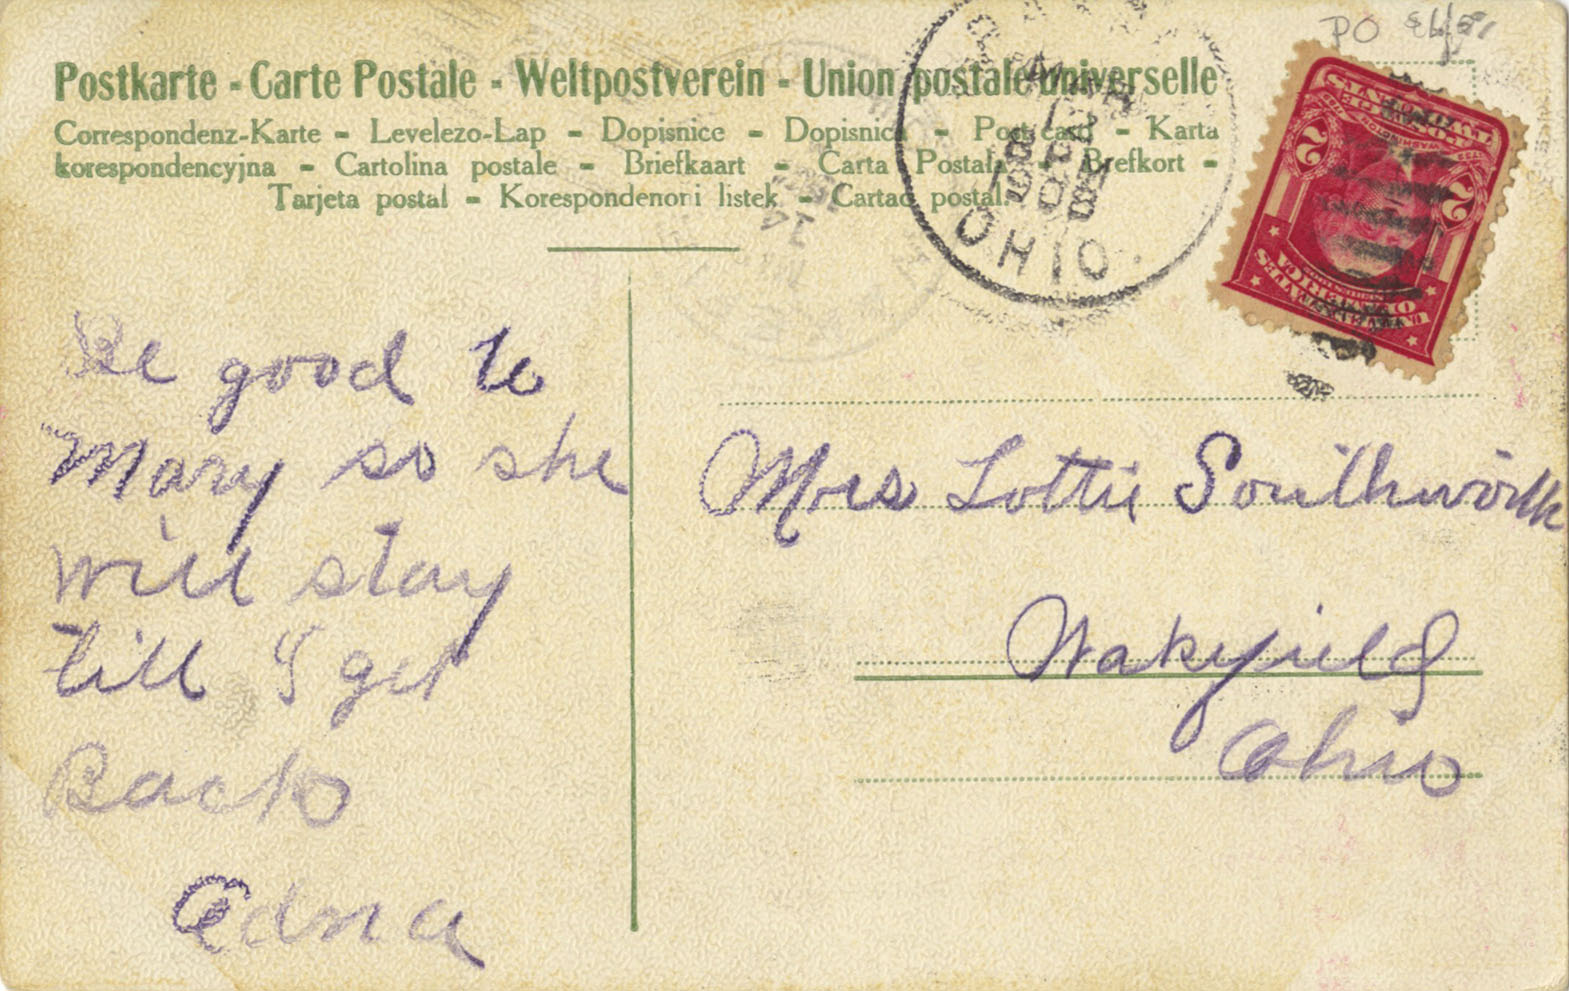 PO
Postkarte - Carte Postale - Weltpostverein - Union postale universelle
Correspondenz-Karte - Levelezo-Lap - Dopisnice - Dopisnica - Post card - Karta
korespondencyjna - Cartolina postale - Briefkaart - Carta Postala - Brefkort -
Tarjeta postal - Korespondencni listek - Cartao postal.
MAR
1908
OHIO
2 2
UNITED STATES
OF AMERICA
Be good to
Mary so she
will stay
till I get
Back
Edna
Mrs Lottie Southworth
Wakefield
Ohio